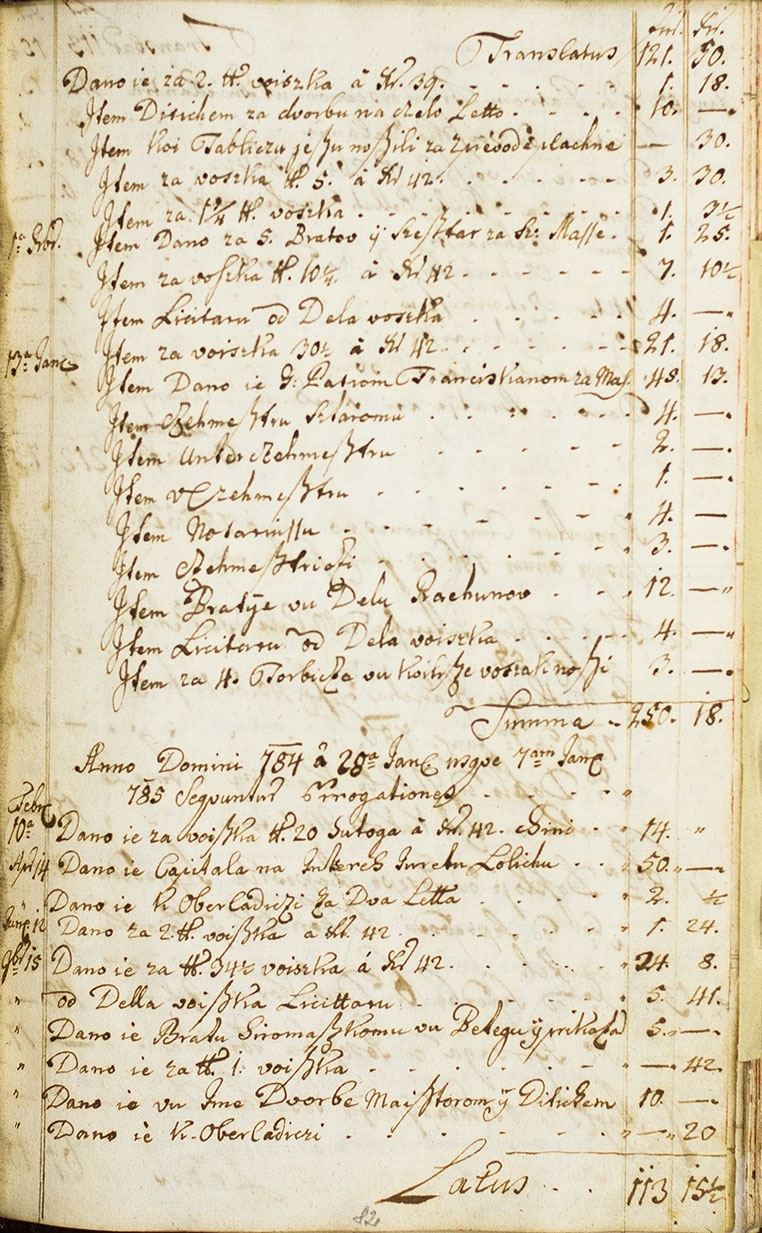 Fll. Kr.
Translatus 121. 50.
Dano ie za 2. ℔. voiszka â Kr. 39. 1. 18.
Item Ditichem za dvorbu na czelo Letto 10. —
Item koi Tabliczu jeszu noszili za — 30.
Item za voszka ℔. 5. â Kr 42. 3. 30.
Item za 1¼ ℔. voszka 1. 3½
1ª Item Dano za 5. Bratov ÿ Szesztar za Sz: Masse. 1. 25.
Item za voszka ℔. 10¼. â Kr 42 7. 10½
Item Licitaru od Dela voszka 4. —
13ª Item za voiszka 30½ â Kr 42. 21. 18.
Item Dano ie Patrom Franciskanom za Mas. 48. 13.
Item Czehmesztru Sztaromu 4. —
Item Unterczehmesztru 2. —
Item vczehmesztru 1. —
Item Notariussu 4. —
Item Czehmesztriczi 3. —
Item Bratÿe vu Delu Rachunov 12. —
Item Licitaru od Dela voiszka 4. —
Item za 4. Torbicze vu koih sze voszak noszi 3. —
Summa 250. 18.
Anno Domini 784 â 28ª usque 7am
785 Seqvuntur Errogationes
10ª Dano ie za voiszka ℔. 20 â Kr. 42. chini 14. "
Apr 14 Dano ie Capitala na Interes Lolichu 50. —
" Dano ie k Oberladiczi za Dva Letta 2. ½
12 Dano za 2. ℔. voiszka a Kr. 42 1. 24.
15 Dano ie za ℔. 34½ voiszka á Kr 42. 24. 8.
" od Della voiszka Licittaru 5. 41.
" Dano ie Bratu Siromaskomu vu Betegu ÿ 5. —
" Dano ie za ℔. 1. voiszka — 42.
" Dano ie vu Ime Dvorbe Maisztorom ÿ Ditichem 10. —
" Dano ie k. Oberladiczi — 20
Latus 113 15½
82